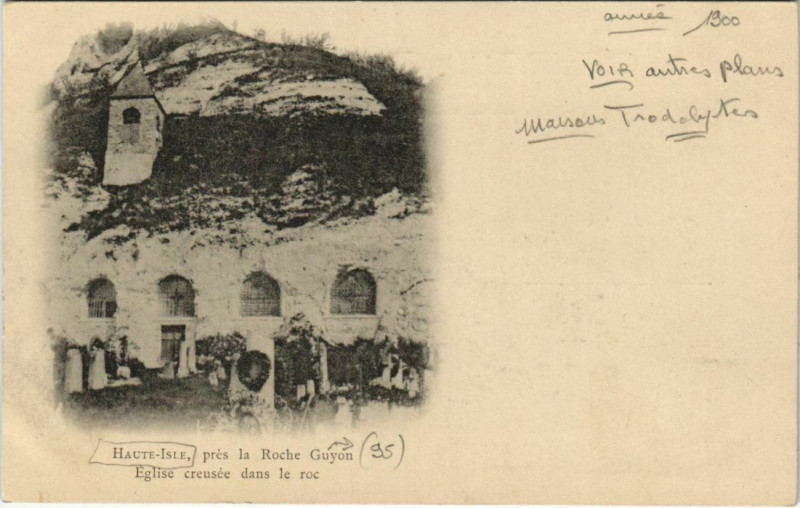 année 1900
Voir autres plans
Maisons Trodolytes
HAUTE-ISLE, près la Roche Guyon (95)
Église creusée dans le roc